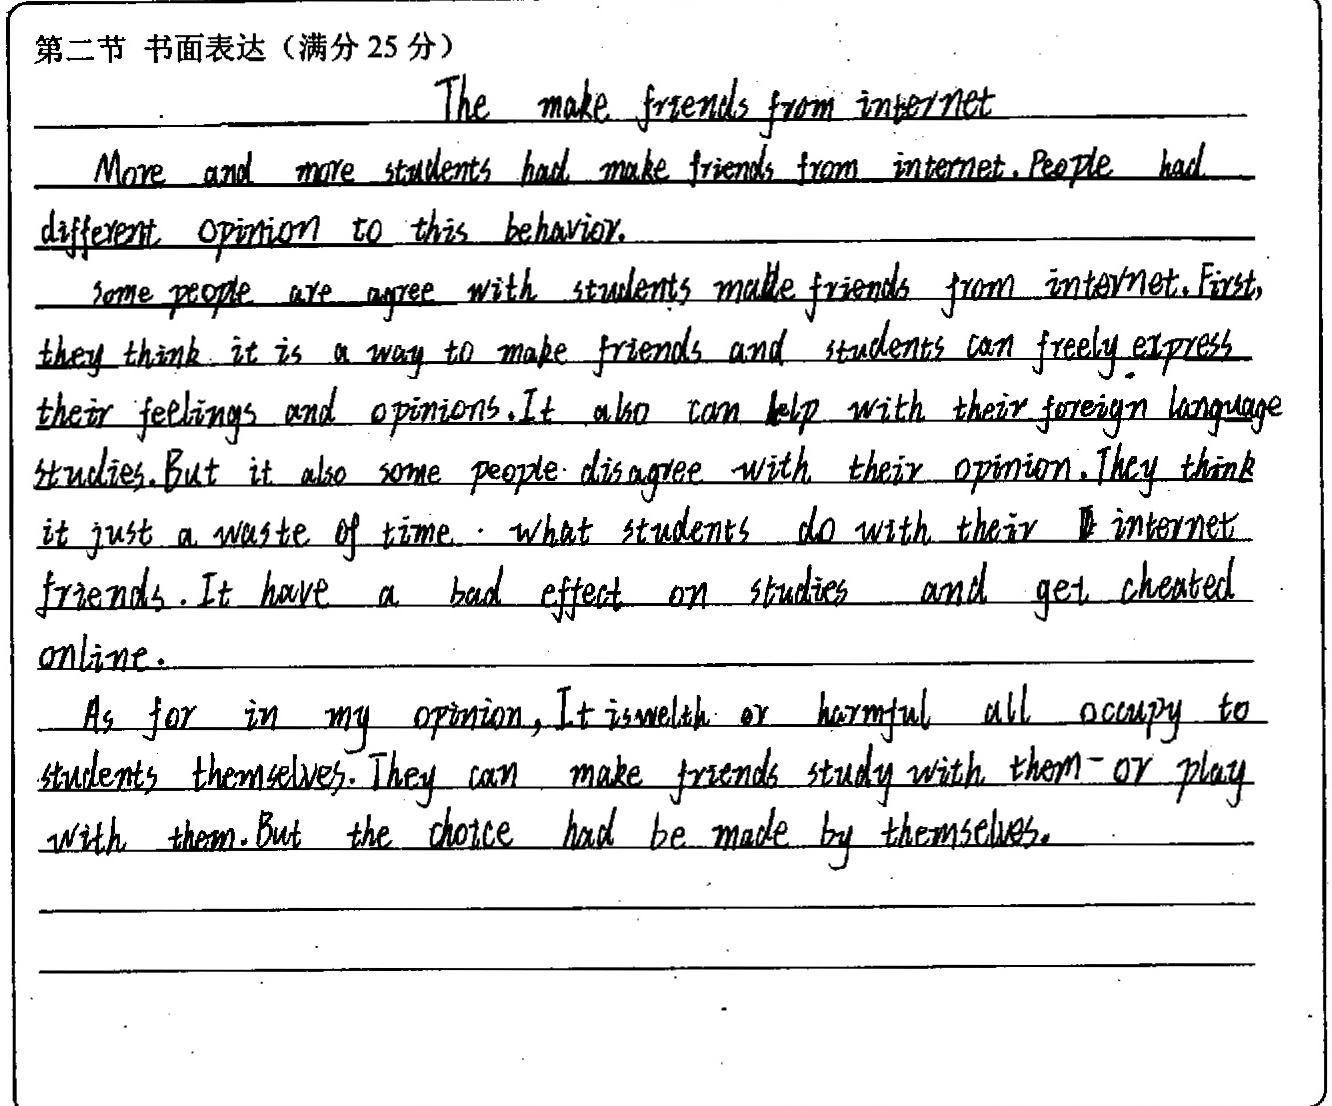 第二节 书面表达（满分 25 分）
The make friends from internet
More and more students had make friends from internet. People had
different opinion to this behavior.
Some people are agree with students make friends from internet. First,
they think it is a way to make friends and students can freely express
their feelings and opinions. It also can help with their foreign language
studies. But it also some people disagree with their opinion. They think
it just a waste of time. what students do with their internet
friends. It have a bad effect on studies and get cheated
online.
As for in my opinion, It is welth or harmful all occupy to
students themselves. They can make friends study with them- or play
with them. But the choice had be made by themselves.